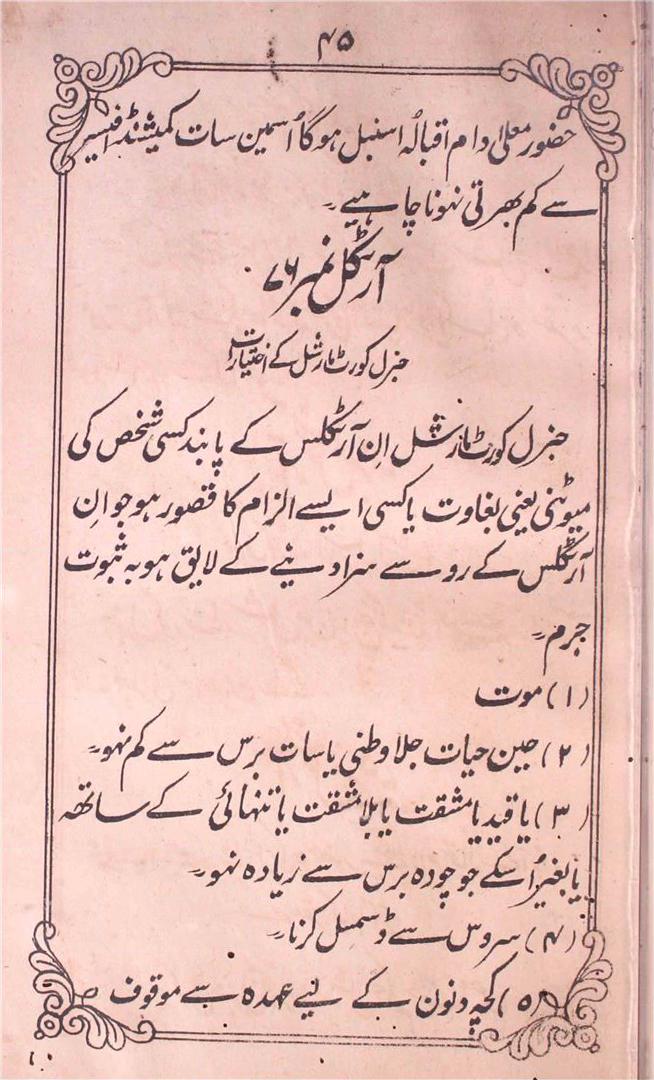 ۴۵
حضور معلی دام اقبالہٗ اسنبل ہوگا اُسمین سات کمیشنڈ افیسر
سے کم بھرتی نہونا چاہیے۔
آرٹکل نمبر ۷۶
جنرل کورٹ مارشل کے اختیارات
جنرل کورٹ مارشل اِن آرٹکلس کے پابند کسی شخص کی
میوٹنی یعنی بغاوت یا کسی ایسے الزام کا قصور ہو جو اِن
آرٹکلس کے رو سے سزا دینے کے لایق ہو بہ ثبوت
جرم۔
(۱) موت
(۲) حین حیات جلاوطنی یا سات برس سے کم نہو۔
(۳) یا قید یا مشقت یا بلا مشقت یا تنہائی کے ساتھہ
یا بغیر اُسکے جو چودہ برس سے زیادہ نہو۔
(۴) سروس سے ڈسمسل کرنا۔
(۵) کچہہ دنون کے لیے عہدہ سے موقوف